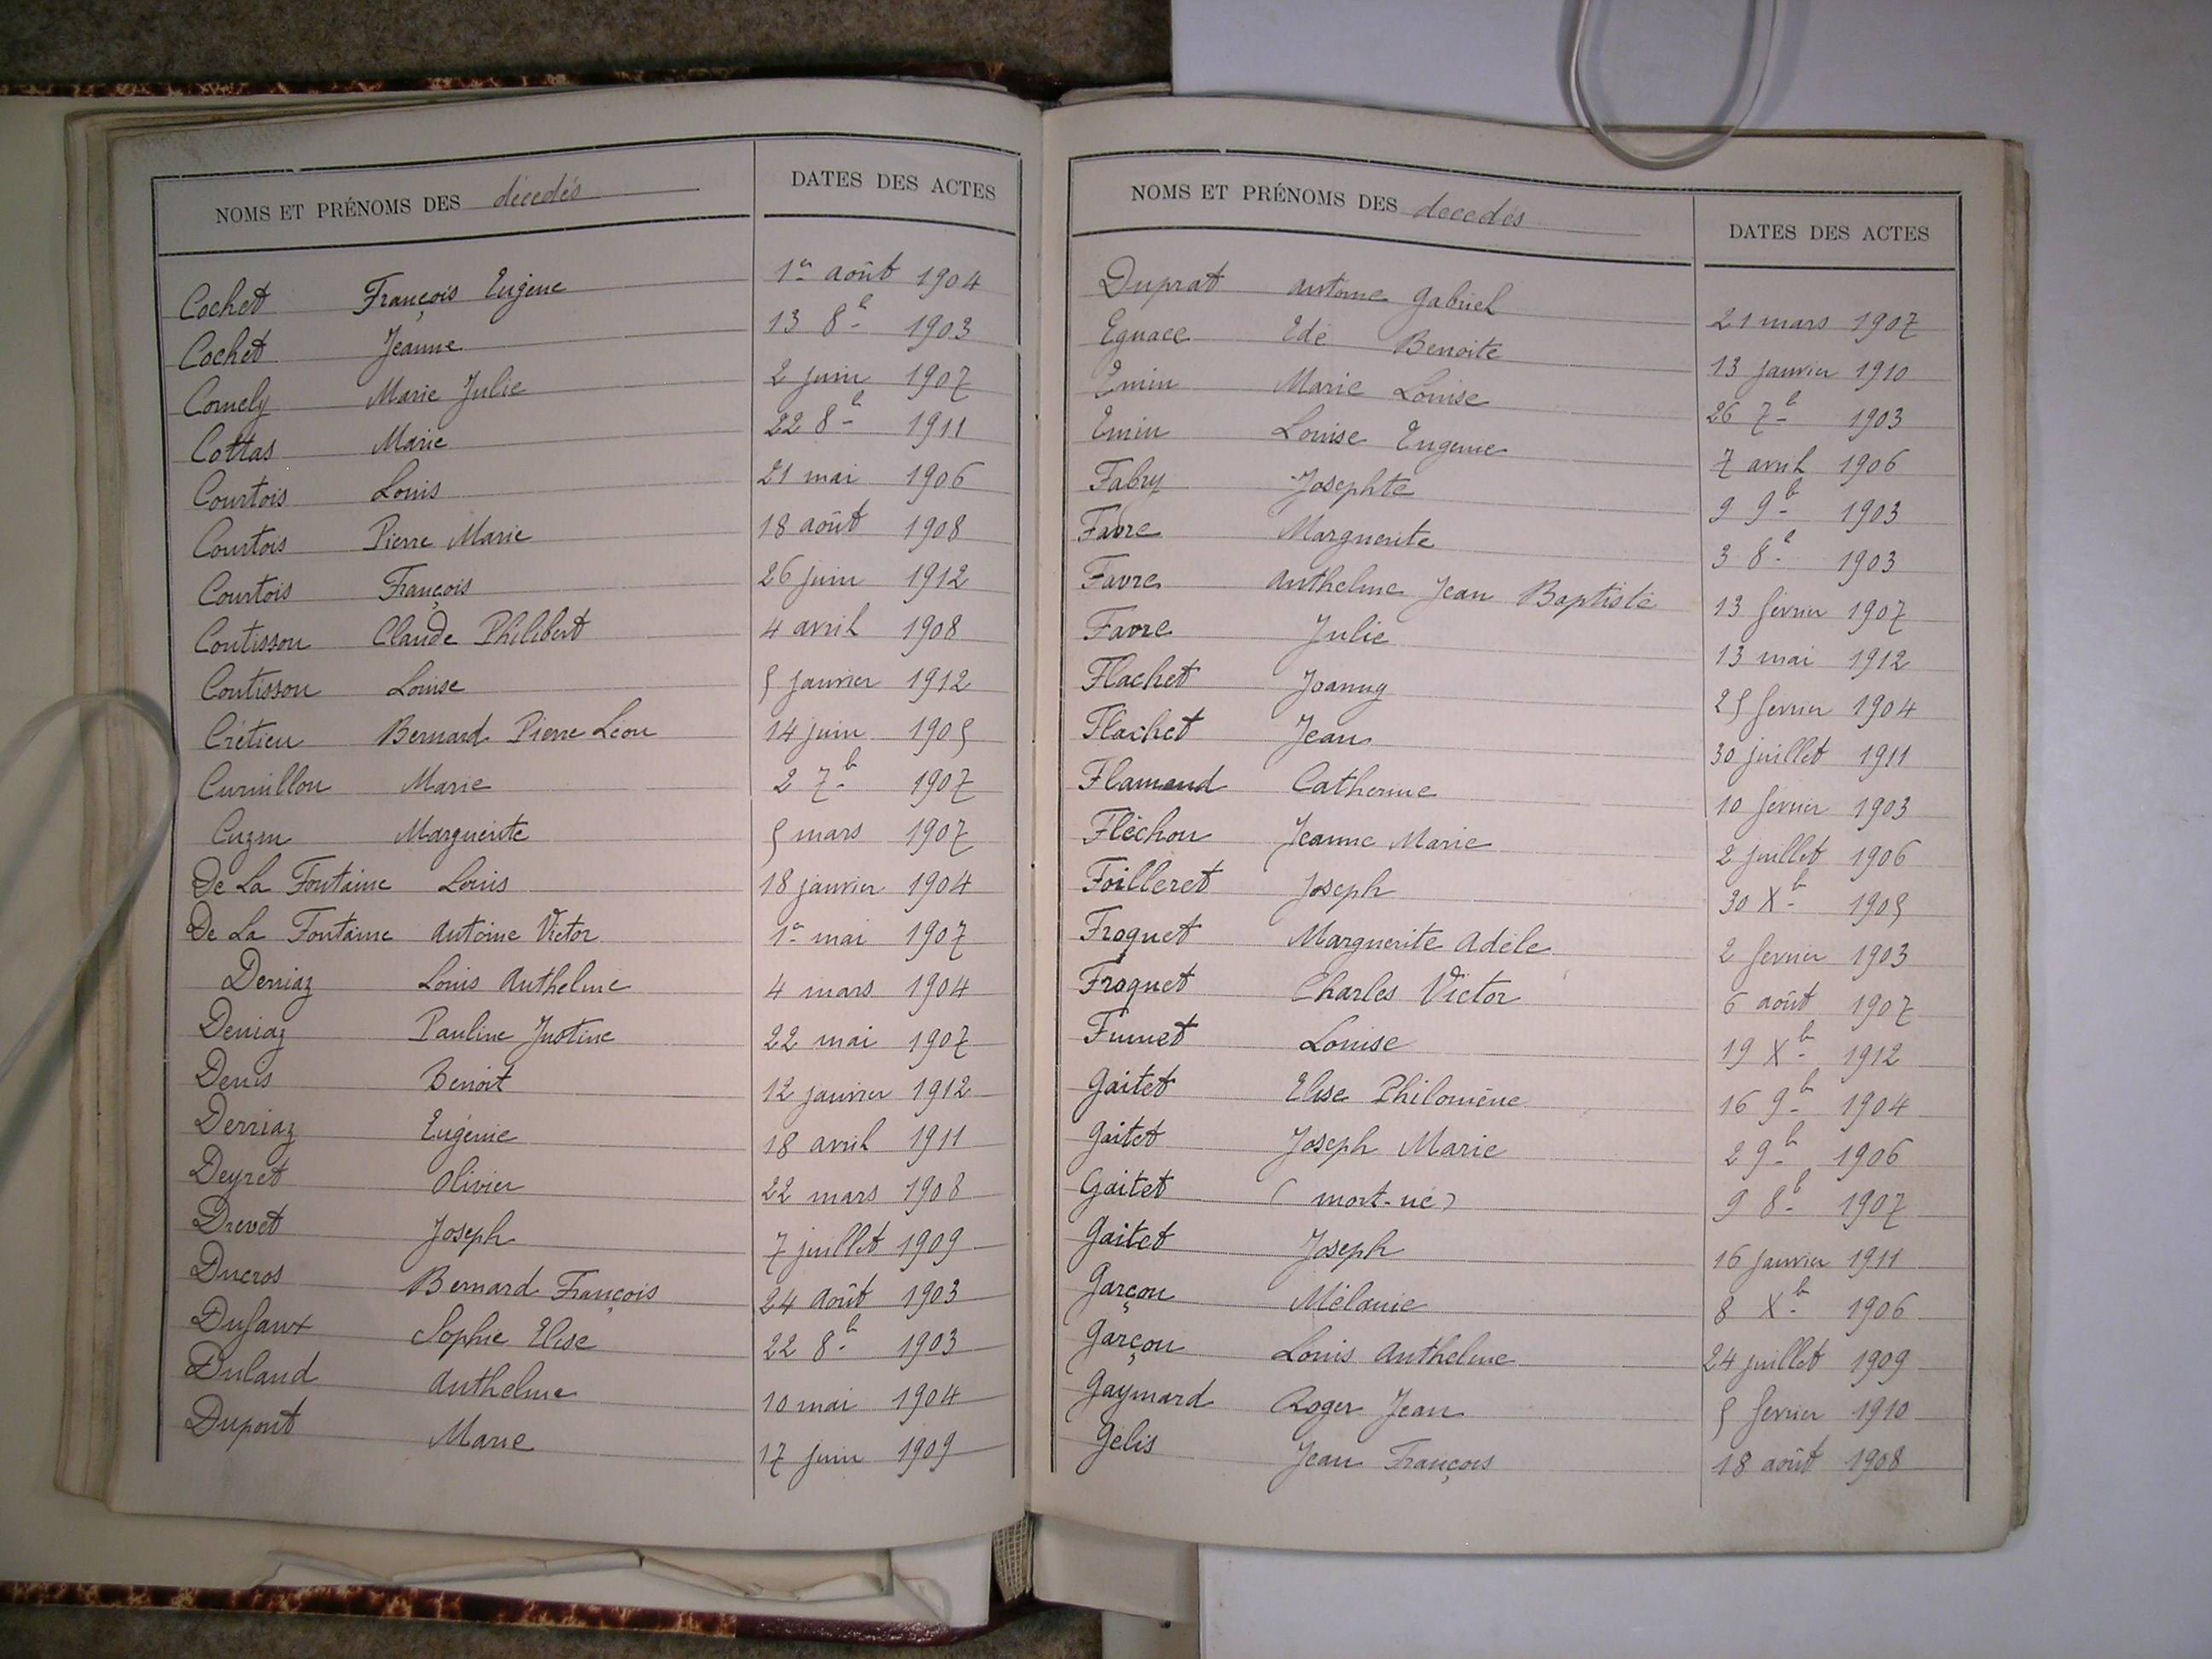 NOMS ET PRÉNOMS DES décédés DATES DES ACTES
Cochet François Eugène 1er août 1904
Cochet Jeanne 13 8b 1903
Comely Marie Julie 2 juin 1907
Cottas Marie 22 8b 1911
Courtois Louis 21 mai 1906
Courtois Pierre Marie 18 août 1908
Courtois François 26 juin 1912
Coutisson Claude Philibert 4 avril 1908
Coutisson Louise 5 janvier 1912
Crétien Bernard Pierre Léon 14 juin 1905
Curnillon Marie 2 7b 1907
Cuzin Marguerite 5 mars 1907
De La Fontaine Louis 18 janvier 1904
De La Fontaine Antoine Victor 1er mai 1907
Derriaz Louis Anthelme 4 mars 1904
Derriaz Pauline Justine 22 mai 1907
Denis Benoit 12 janvier 1912
Derriaz Eugénie 18 avril 1911
Deyret Olivier 22 mars 1908
Drevet Joseph 7 juillet 1909
Ducros Bernard François 24 août 1903
Dufaux Sophie Elise 22 8b 1903
Duland Anthelme 10 mai 1904
Dupont Marie 17 juin 1909
NOMS ET PRÉNOMS DES décédés DATES DES ACTES
Duprat Antoine Gabriel 21 mars 1907
Egnace Edé Benoite 13 janvier 1910
Emin Marie Louise 26 7b 1903
Emin Louise Eugénie 7 avril 1906
Fabry Josephte 9 9b 1903
Favre Marguerite 3 8b 1903
Favre Anthelme Jean Baptiste 13 février 1907
Favre Julie 13 mai 1912
Flachet Joanny 25 février 1904
Flachet Jean 30 juillet 1911
Flamand Catherine 10 février 1903
Fléchon Jeanne Marie 2 juillet 1906
Foilleret Joseph 30 Xb 1905
Froquet Marguerite Adèle 2 février 1903
Froquet Charles Victor 6 août 1907
Fumet Louise 19 Xb 1912
Gaitet Elise Philomène 16 9b 1904
Gaitet Joseph Marie 2 9b 1906
Gaitet (mort-né) 9 8b 1907
Gaitet Joseph 16 janvier 1911
Garçon Mélanie 8 Xb 1906
Garçon Louis Anthelme 24 juillet 1909
Gaymard Roger Jean 5 février 1910
Gelis Jean François 18 août 1908